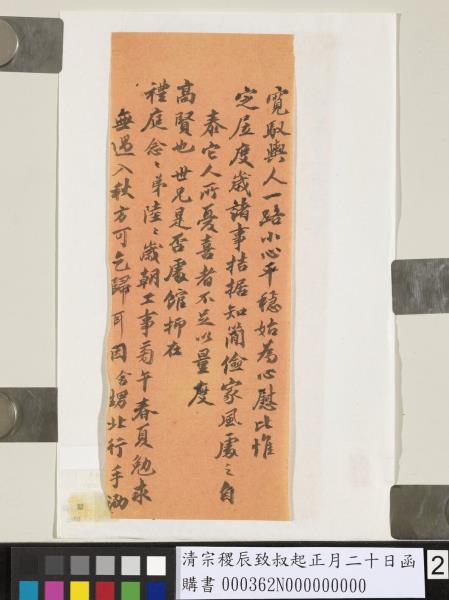 寬馭輿人一路小心平穩姑為心慰比惟
定居度歲諸事拮据知簡儉家風處之自
泰它人所憂喜者不足以量度
高賢也世兄是否處館抑在
禮庭念〻弟陸〻歲朝工事旁午春夏勉求
無過入秋方可乞歸耳因舍甥北行手泐
清宗稷辰致叔起正月二十日函
購書 000362N000000000
2